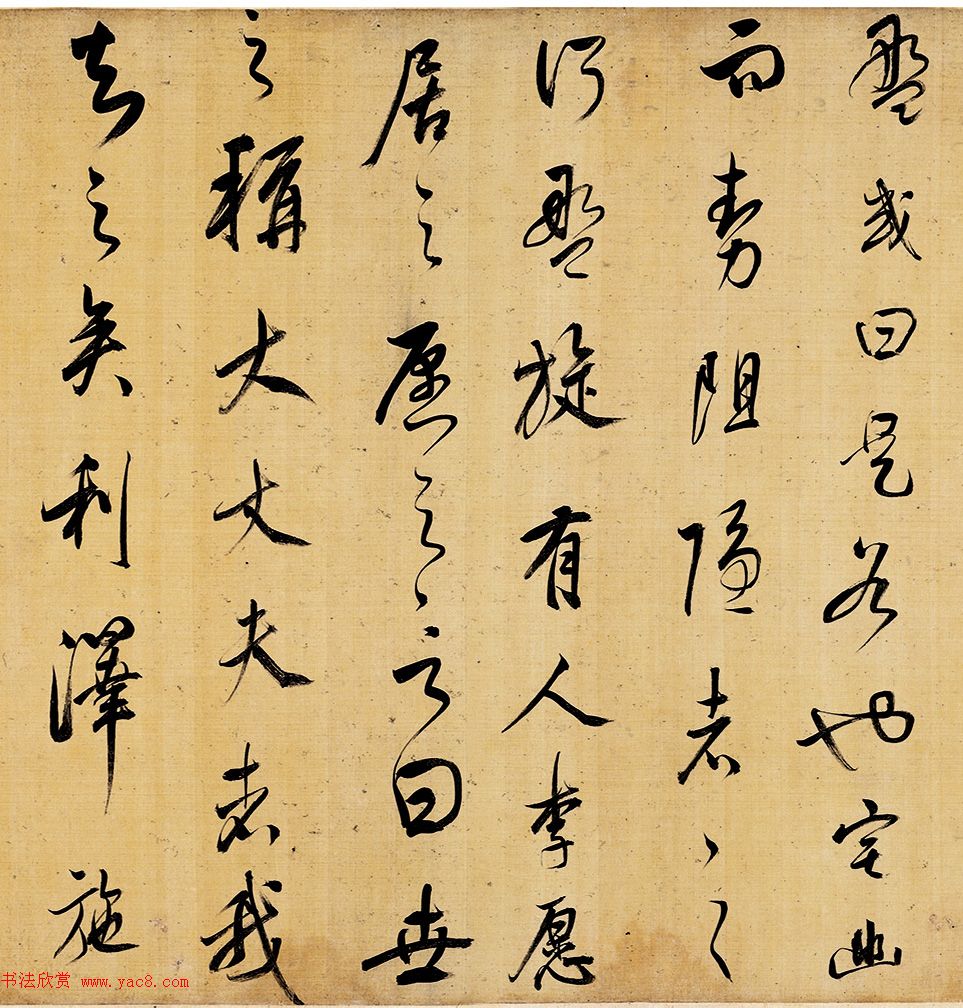 盤或曰是谷也宅幽
而勢阻隱者之
所盤旋有人李愿
居之愿之言曰世
之稱大丈夫者我
知之矣利澤施
书法欣赏 www.yac8.com